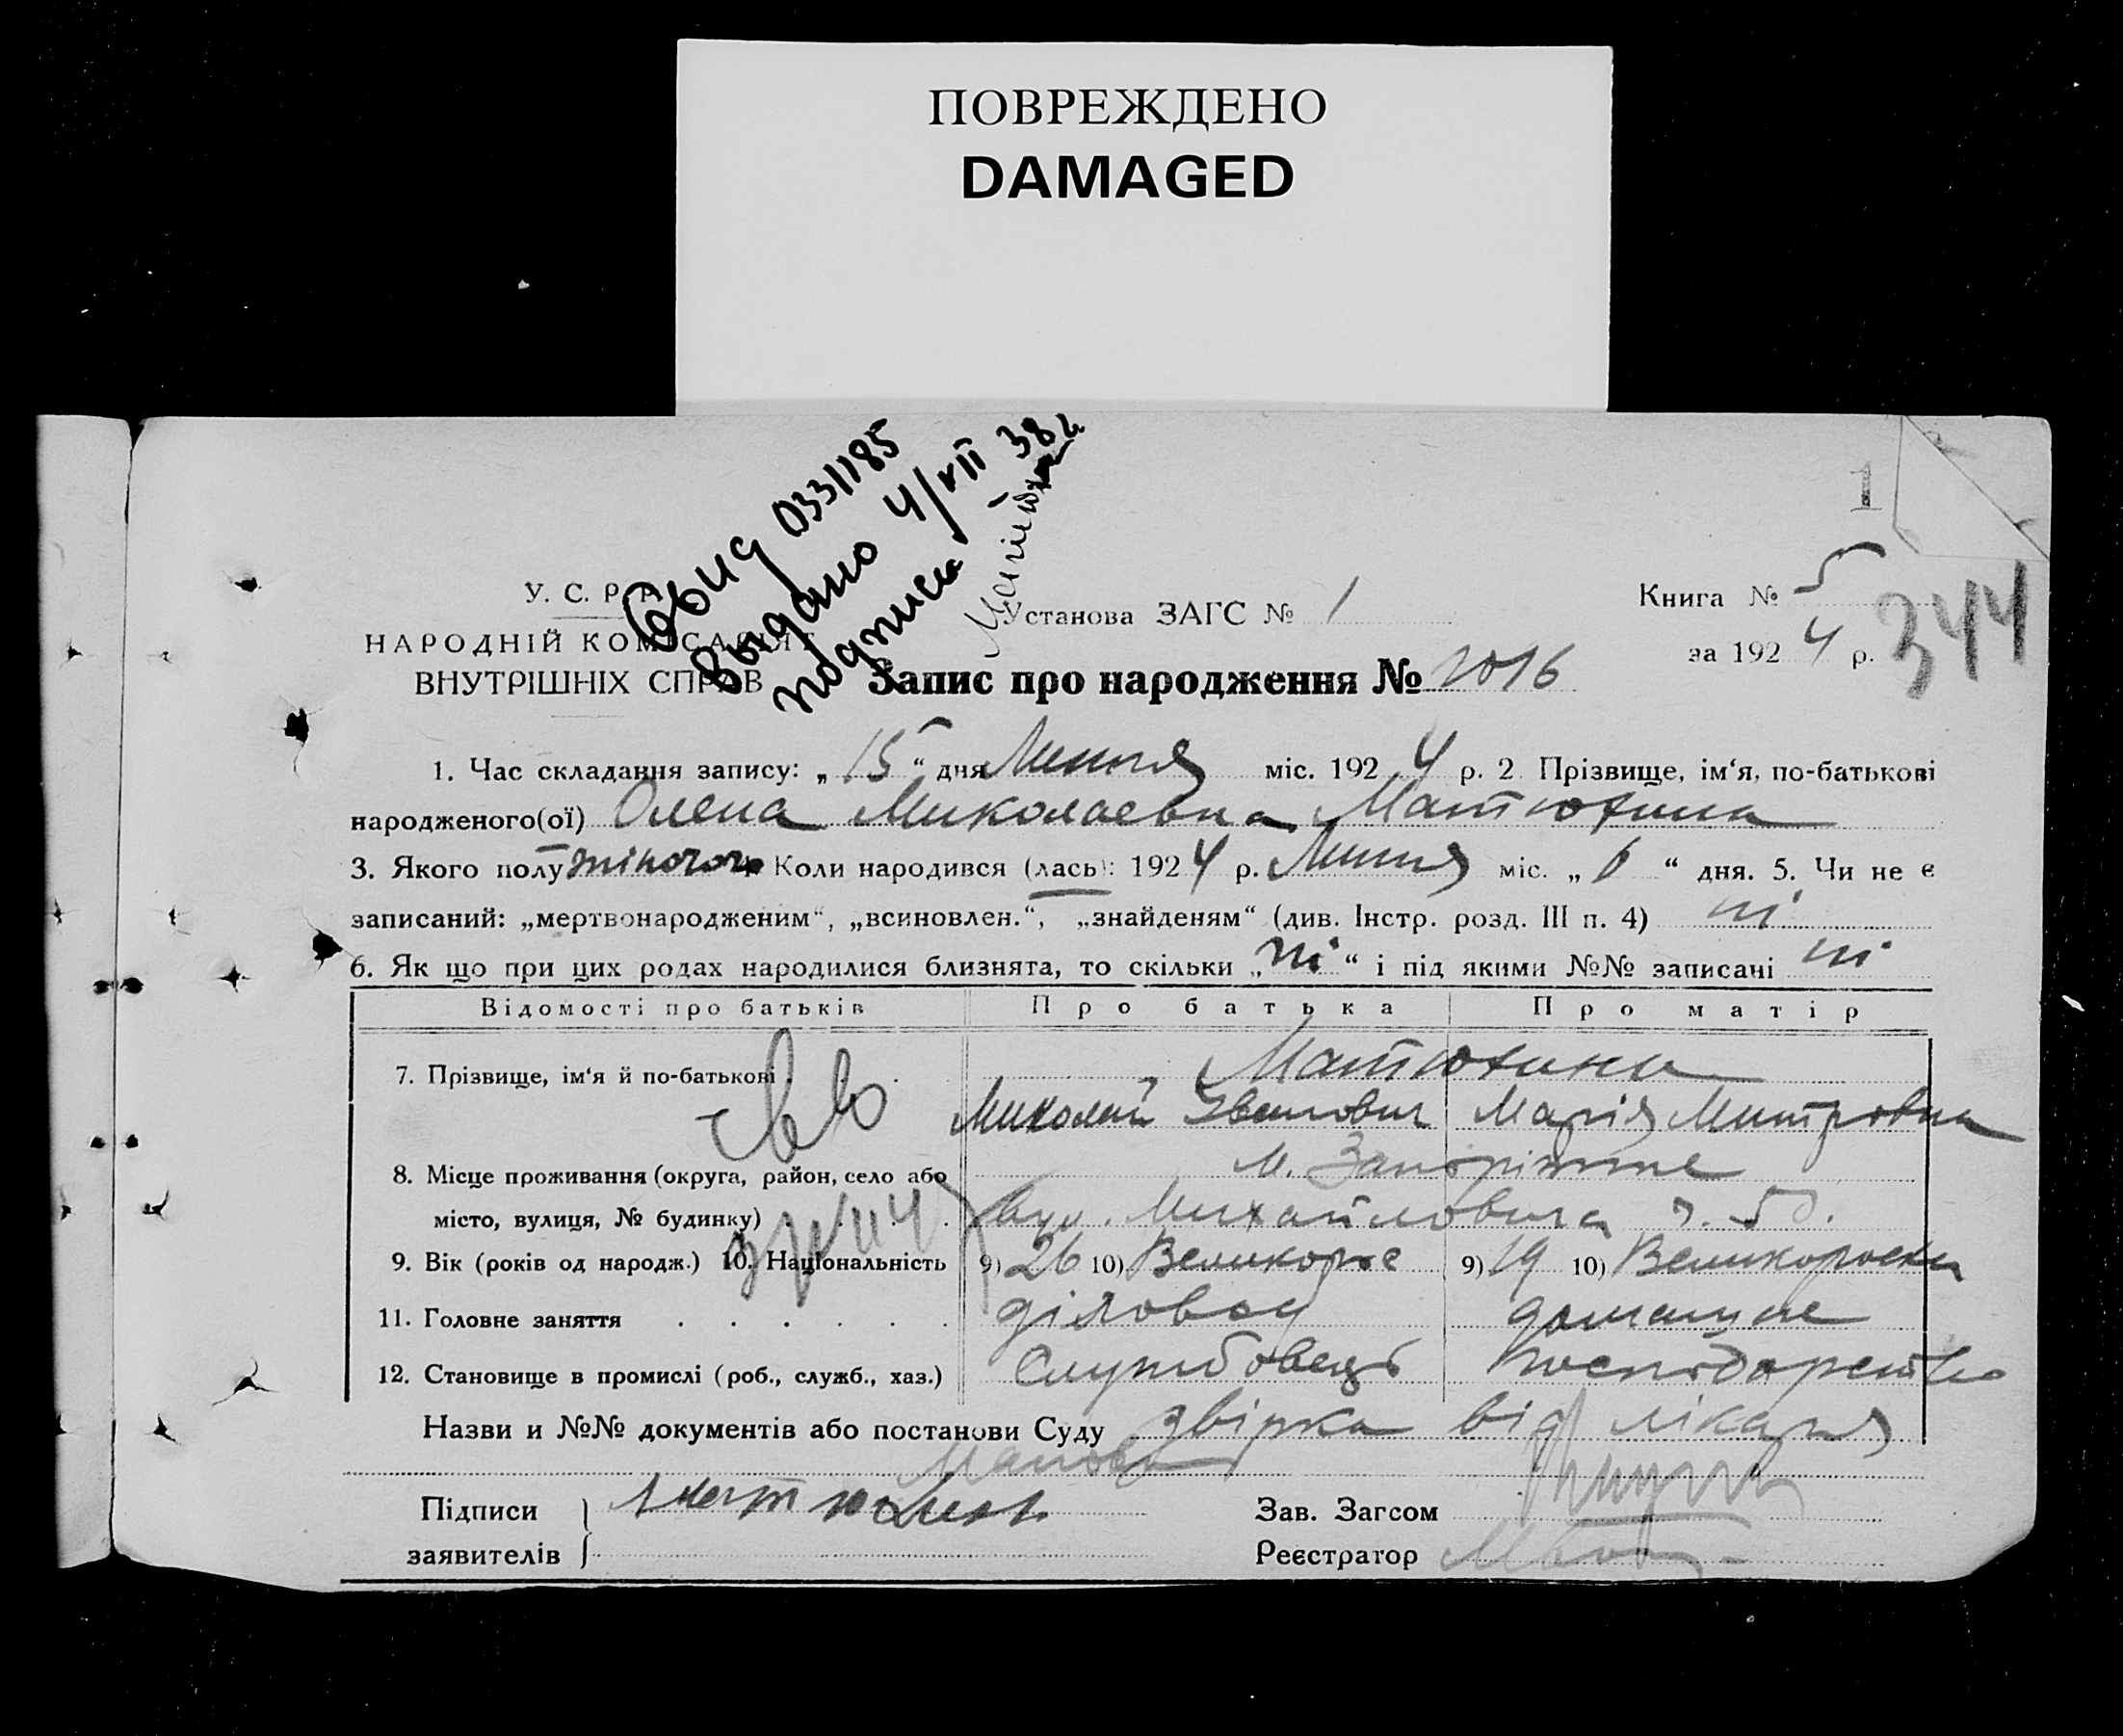 ПОВРЕЖДЕНО
DAMAGED
0331185
выдано 4/VII 38 г.
подпись
1
У. С. Р. Р.
НАРОДНІЙ КОМІСАРІЯТ
ВНУТРІШНІХ СПРАВ
Установа ЗАГС № 1
Книга № 5
за 1924 р.
344
Запис про народження № 1016
1. Час складання запису: „15“ дня Липня міс. 1924 р. 2. Прізвище, ім‘я, по-батькові
народженого(ої) Олена Миколаевна Матюхина
3. Якого полу жіночого 4. Коли народився (лась): 1924 р. Липня міс. „6“ дня. 5. Чи не є
записаний: „мертвонародженим“, „всиновлен.“, „знайденям“ (див. Інстр. розд. III п. 4) ні
6. Як що при цих родах народилися близнята, то скільки „ні“ і під якими №№ записані ні
Відомості про батьків Про батька Про матір
7. Прізвище, ім‘я й по-батькові Матюхини
Миколай Іванович Марія Митровна
8. Місце проживання (округа, район, село або М. Запоріжже
місто, вулиця, № будинку) вул. Михайловича 50.
9. Вік (років од народж.) 10. Національність 9) 26 10) Великорос 9) 19 10) Великороска
11. Головне заняття діловод домашне
12. Становище в промислі (роб., служб., хаз.) Службовець господарство
Назви и №№ документів або постанови Суду звірка від лікаря
Підписи Матюхин Зав. Загсом
заявителів Реєстратор